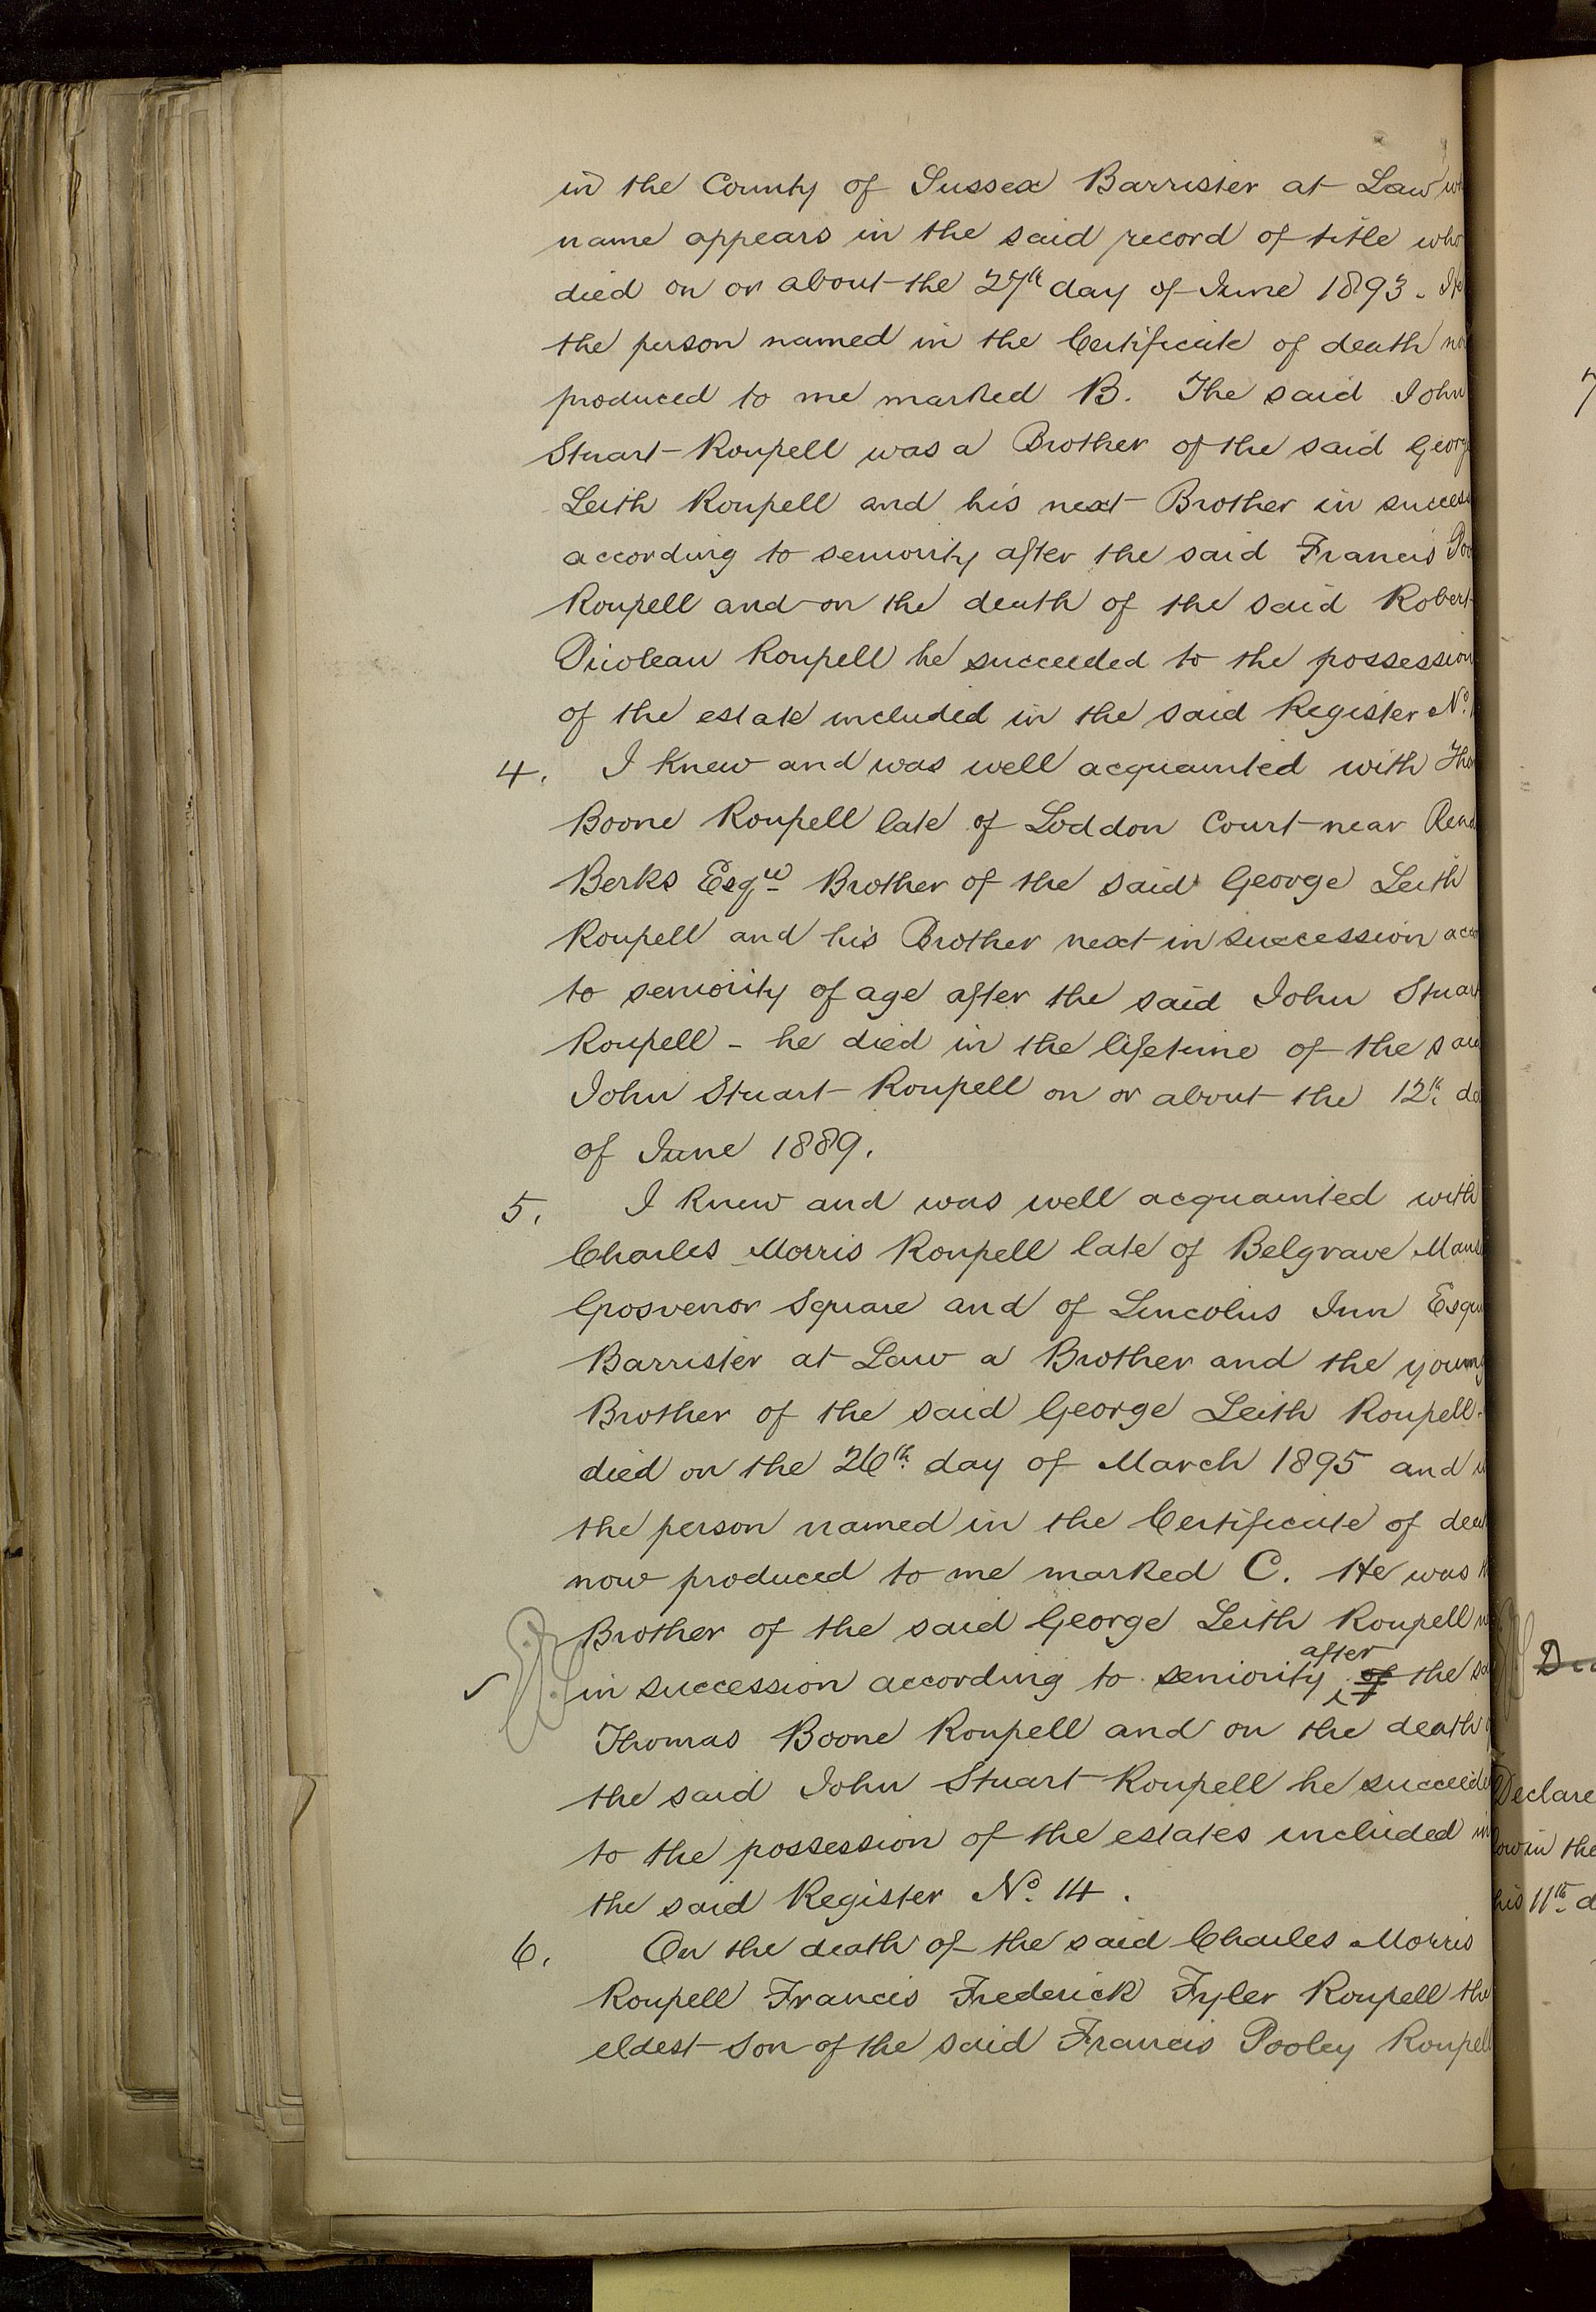 in the County of Sussex Barrister at Law
name appears in the said record of title who
died on or about the 27th day of June 1893. He
the person named in the Certificate of death
produced to me marked B. The said John
Stuart Roupell was a Brother of the said Georg
Leith Roupell and his next Brother in success
according to seniority after the said Francis Poo
Roupell and on the death of the said Robert
Roupell he succeeded to the possession
of the estate included in the said Register No.
4. I knew and was well acquainted with Tho
Boone Roupell late of Loddon Court near Read
Berks Esqre Brother of the said George Leith
Roupell and his Brother next in succession acco
to seniority of age after the said John Stuart
Roupell - he died in the lifetime of the said
John Stuart Roupell on or about the 12th da
of June 1889.
5. I knew and was well acquainted with
Charles Morris Roupell late of Belgrave Mans
Grosvenor Square and of Lincolns Inn Esqu
Barrister at Law a Brother and the young
Brother of the said George Leith Roupell
died on the 26th day of March 1895 and i
the person named in the Certificate of deat
now produced to me marked C. He was
Brother of the said George Leith Roupell
after
in succession according to seniority of the sa
Thomas Boone Roupell and on the death
the said John Stuart Roupell he succeede
to the possession of the estates included in
the said Register No. 14.
6. On the death of the said Charles Morris
Roupell Francis Frederick Fyler Roupell the
eldest son of the said Francis Pooley Roupell
Declare
in the
his 11th d